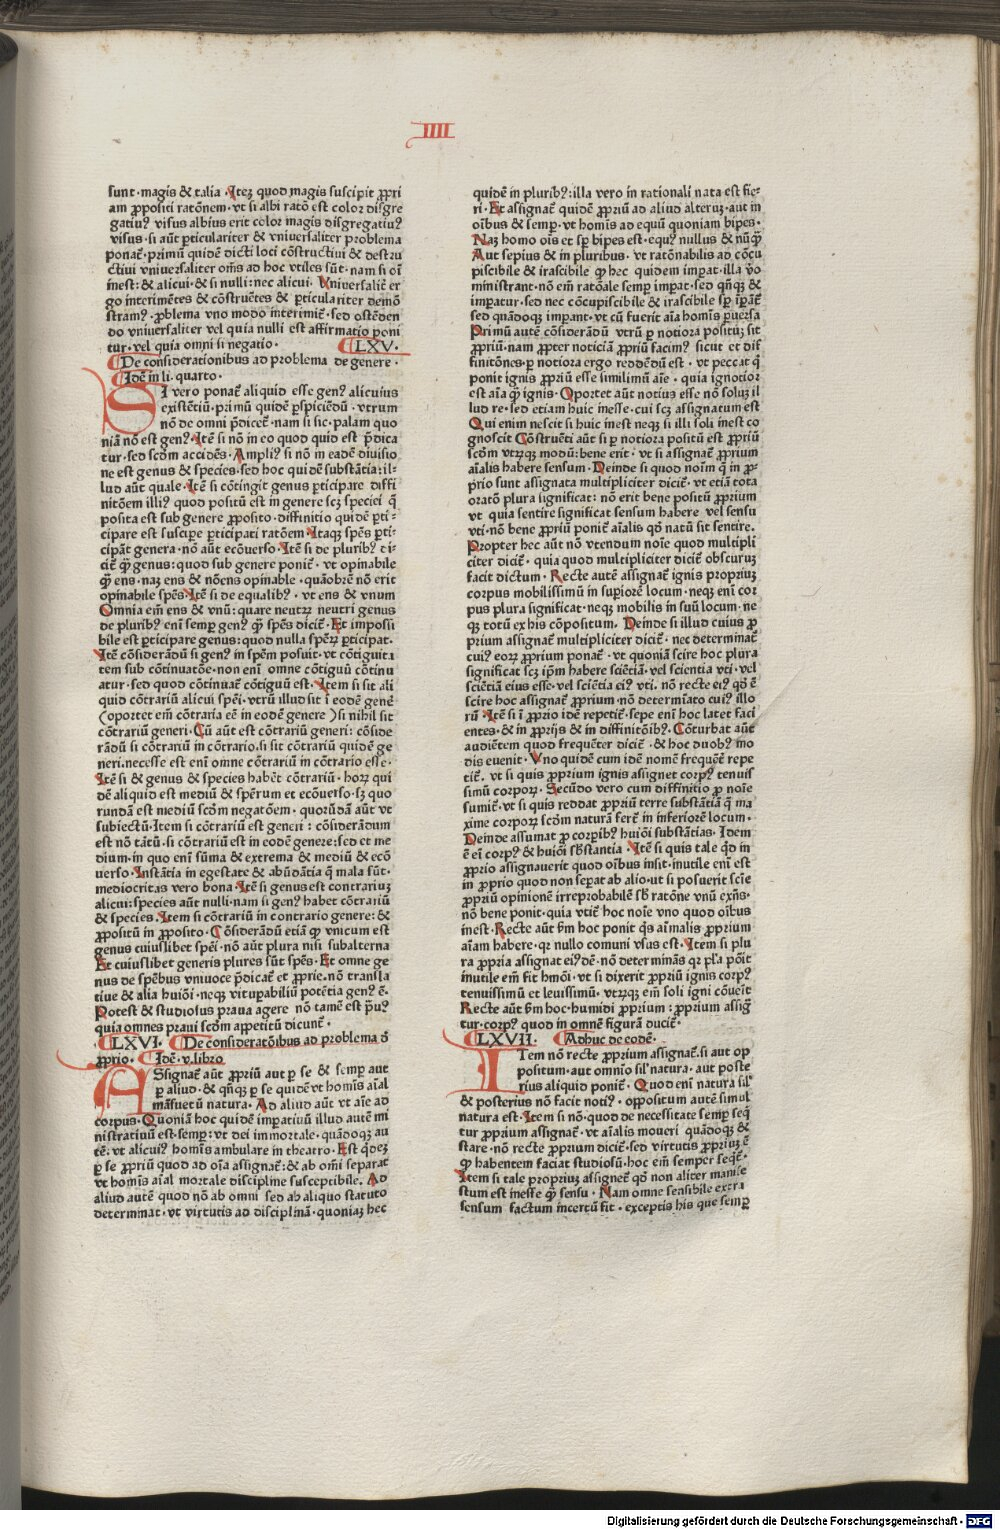 IIII
sunt·magis & talia·Iteꝫ quod magis suscipit ꝓpri
am ꝓpositi ratōnem·vt si albi ratō est color disgre
gatiuꝰ visus albius erit color magis disgregatiuꝰ
visus·si aūt ꝑticulariter & vniuersaliter problema
ponat̄·primū quidē dicti loci cōstructiui & destru
ctiui vniuersaliter om̄s ad hoc vtiles sūt·nam si oī
inest:& alicui·& si nulli:nec alicui. Vniuersalit̄ er
go interimētes & cōstruētes & ꝑticulariter demō
stram?·ꝓblema vno modo interimit̄·sed ostēden
do vniuersaliter vel quia nulli est affirmatio poni
tur·vel quia omni si negatio·
LXV·
De considerationibus ad problema de genere·
Idē in li·quarto·
SI vero ponat̄ aliquid esse genꝰ alicuius
existētiū·primū quidē ꝑspiciēdū·vtrum
nō de omni p̄dicet̄·nam si sic·palam quo
niā nō est genꝰ·Itē si nō in eo quod quid est p̄dica
tur·sed scđm accidēs·Ampliꝰ si nō in eadē diuisio
ne est genus & species·sed hoc quidē substātia:il-
lud aūt quale·Itē si cōtingit genus ꝑticipare diffi
nitōem illiꝰ quod positū est in genere scꝫ speciei q̄
posita est sub genere ꝓposito·diffinitio quidē ꝑti-
cipare est suscipe ꝑticipati ratōem·Itaqꝫ spēs ꝑti-
cipāt genera·nō aūt ecōuerso·Itē si de pluribꝰ di-
cit̄ q̄ȝ genus:quod sub genere ponit̄·vt opinabile
q̄ȝ ens·naꝫ ens & nōens opinable·quāobrē nō erit
opinabile spēs·Itē si de equalibꝰ·vt ens & vnum
Omnia em̄ ens & vnū:quare neutꝝ neutri genus
de pluribꝰ enī semꝑ genꝰ q̄ȝ spēs dicit̄·Et impossi
bile est ꝑticipare genus:quod nulla spērꝫ ꝑticipat·
Itē cōsiderādū si genꝰ in spēm posuit·vt cōtiguita
tem sub cōtinuatōe·non enī omne cōtiguū cōtinu
atur·sed quod cōtinuat̄ cōtiguū est·Item si sit ali
quid cōtrariū alicui spēi·vtrū illud sit ī eodē genē
(oportet em̄ cōtraria eē in eodē genere) si nihil sit
cōtrariū generi·Cū aūt est cōtrariū generi: cōside
rādū si cōtrariū in cōtrario·si sit cōtrariū quidē ge
neri·necesse est enī omne cōtrariū in cōtrario esse·
Itē si & genus & species habēt cōtrariū·horꝫ qui
dē aliquid est mediū & spērum et ecōuerso·sꝫ quo
rundā est mediū scđm negatōem·quorūdā aūt vt
subiectū·Item si cōtrariū est generi: cōsiderādum
est nō tātū·si cōtrariū est in eodē genere:sed et me
dium·in quo enī sūma & extrema & mediū & ecō
uerso·Instātia in egestate & abūdātia q̄ mala sūt·
mediocritas vero bona·Itē si genus est contrariuꝫ
alicui:species aūt nulli·nam si genꝰ habet cōtrariū
& species·Item si cōtrariū in contrario genere:&
ꝓpositū in ꝓposito·Cōsiderādū etiā ꝙ vnicum est
genus cuiuslibet spēi·nō aūt plura nisi subalterna
Et cuiuslibet generis plures sūt spēs·Et omne ge
nus de spēbus vniuoce p̄dicat̄ et ꝓprie·nō transla
tiue & alia huiōi·neqꝫ vituꝑabiliū potētia genꝰ ē·
Potest & studiosus praua agere nō tamē est p̄uꝰ
quia omnes praui scđm appetitū dicunt̄·
LXVI· De consideratōibus ad problema đ
ꝓprio· Idē·v·libro
ASsignat̄ aūt ꝓpriū aut ꝑ se & semꝑ aut
ꝑ aliud·& qn̄qꝫ ꝑ se quidē vt homīs aīal
māsuetū natura·Ad aliud aūt vt aīe ad
corpus·Quoniā hoc quidē imꝑatiuū illud autē mi
nistratiuū est·semꝑ:vt dei immortale·quādoqꝫ au
tē:vt alicuiꝰ homīs ambulare in theatro·Est q̄deꝫ
ꝑ se ꝓpriū quod ad oīa assignat̄:& ab om̄i separat
vt homīs aīal mortale discipline susceptibile. Ad
aliud autē quod nō ab omni sed ab aliquo statuto
determinat·vt virtutis ad disciplinā·quoniaꝫ hec
quidē in pluribꝰ:illa vero in rationali nata est fie-
ri·Et assignat̄ quidē ꝓpriū ad aliud alteruꝫ·aut in
oībus & semꝑ·vt homīs ad equū quoniam bipes·
Naꝫ homo ois et sꝑ bipes est·equꝰ nullus & nūq̄ȝ
Aut sepius & in pluribus·vt ratōnabilis ad cōcu
piscibile & irascibile ꝙ hec quidem imꝑat·illa v̄o
ministrant·nō em̄ ratōale semꝑ imꝑat·sed qn̄qꝫ &
imꝑatur·sed nec cōcupiscibile & irascibile sꝑ īꝑāt̄
sed quādoqꝫ imꝑant·vt cū fuerit aīa homīs ꝑuersa
Primū autē cōsiderādū vtrū ꝑ notiora posituꝫ sit
ꝓpriū·nam ꝓpter noticiā ꝓpriū facimꝰ sicut et dif
finitōnes·ꝑ notiora ergo reddēdū est·vt peccat q̄
ponit ignis ꝓpriū esse similimū aīe·quia ignotior
est aīa q̄ȝ ignis·Oportet aūt notius esse nō soluꝫ il
lud re·sed etiam huic inesse·cui scꝫ assignatum est
Qui enim nescit si huic inest neqꝫ si illi soli inest co
gnoscit Cōstruēti aūt si ꝑ notiora positū est ꝓpriū
scđm vtrꝫqꝫ modū:bene erit·vt si assignat̄ ꝓprium
aīalis habere sensum·Deinde si quod noīm q̄ in ꝓ-
prio sunt assignata multipliciter dicit̄·vt etiā tota
oratō plura significat: nō erit bene positū ꝓprium
vt quia sentire significat sensum habere vel sensu
vti·nō bene ꝓpriū ponit̄ aīalis qđ natū sit sentire.
Propter hec aūt nō vtendum noīe quod multipli
citer dicit̄·quia quod multipliciter dicit̄ obscuruꝫ
facit dictum·Recte autē assignat̄ ignis propriuꝫ
corpus mobilissimū in supiorē locum·neqꝫ enī cor
pus plura significat·neqꝫ mobilis in suū locum·ne
qꝫ totū ex his cōpositum. Deinde si illud cuius ꝓ
prium assignat̄ multipliciter dicit̄·nec determinat̄
cuiꝰ eorꝫ ꝓprium ponat̄·vt quoniā scire hoc plura
significat scꝫ ip̄m habere sciētiā·vel scientia vti·vel
sciētiā eius esse·vel sciētia eiꝰ vti·nō recte eiꝰ qđ ē
scire hoc assignat̄ ꝓprium·nō determīato cuiꝰ illo
rū·Itē si ī ꝓprio idē repetit̄·sepe enī hoc latet faci
entes·& in ꝓprijs & in diffinitōibꝰ·Cōturbat aūt
audiētem quod frequēter dicit̄·& hoc duobꝰ mo
dis euenit·Vno quidē cum idē nomē frequēt̄ repe
tit̄·vt si quis ꝓprium ignis assignet corpꝰ tenuis
simū corporꝫ·Secūdo vero cum diffinitio ꝓ noīe
sumit̄·vt si quis reddat ꝓpriū terre substātiā q̄ ma
xime corporꝫ scđm naturā fert̄ in inferiorē locum·
Deinde assumat ꝓ corpībꝰ huiōi substātias. Idem
ē eī corpꝰ & huiōi sb̄stantia·Itē si quis tale qđ in
ꝓprio assignauerit quod oībus insit·inutile enī est
in ꝓprio quod non seꝑat ab alio·ut si posuerit scīe
ꝓpriū opinionē irreprobabilē sb̄ ratōne vnū exn̄s·
nō bene ponit·quia vtit̄ hoc noīe vno quod oībus
inest·Recte aūt b̄m hoc ponit qs aīmalis ꝓprium
aīam habere·qꝛ nullo comuni vsus est·Item si plu
ra ꝓpria assignat eiꝰdē·nō determinās qꝛ pla pōit
inutile em̄ fit hmōi·vt si dixerit ꝓpriū ignis corpꝰ
tenuissimū et leuissimū·vtrꝫqꝫ em̄ soli igni cōueīt
Recte aūt b̄m hoc·humidi ꝓprium:ꝓprium assiḡ
tur·corpꝰ quod in omnē figurā ducit̄·
LXVII· Adhuc de eodē·
ITem nō recte ꝓprium assignat̄·si aut op
positum·aut omnīo sil' natura·aut poste
rius aliquid ponit̄·Quod enī natura sil'
& posterius nō facit notiꝰ·oppositum autē simul
natura est·Item si nō·quod de necessitate semꝑ seq̄
tur ꝓprium assignat̄·vt aīalis moueri quādoqꝫ &
stare·nō recte ꝓprium dicit̄·sed virtutis ꝓpriuꝫ ē
ꝙ habentem faciat studiosū·hoc em̄ semper seqt̄·
Item si tale propriuꝫ assignet̄ qđ non aliter manife
stum est inesse q̄ȝ sensu·Nam omne sensibile extra
sensum factum incertū fit·exceptis his que semꝑ
Digitalisierung gefördert durch die Deutsche Forschungsgemeinschaft - DFG